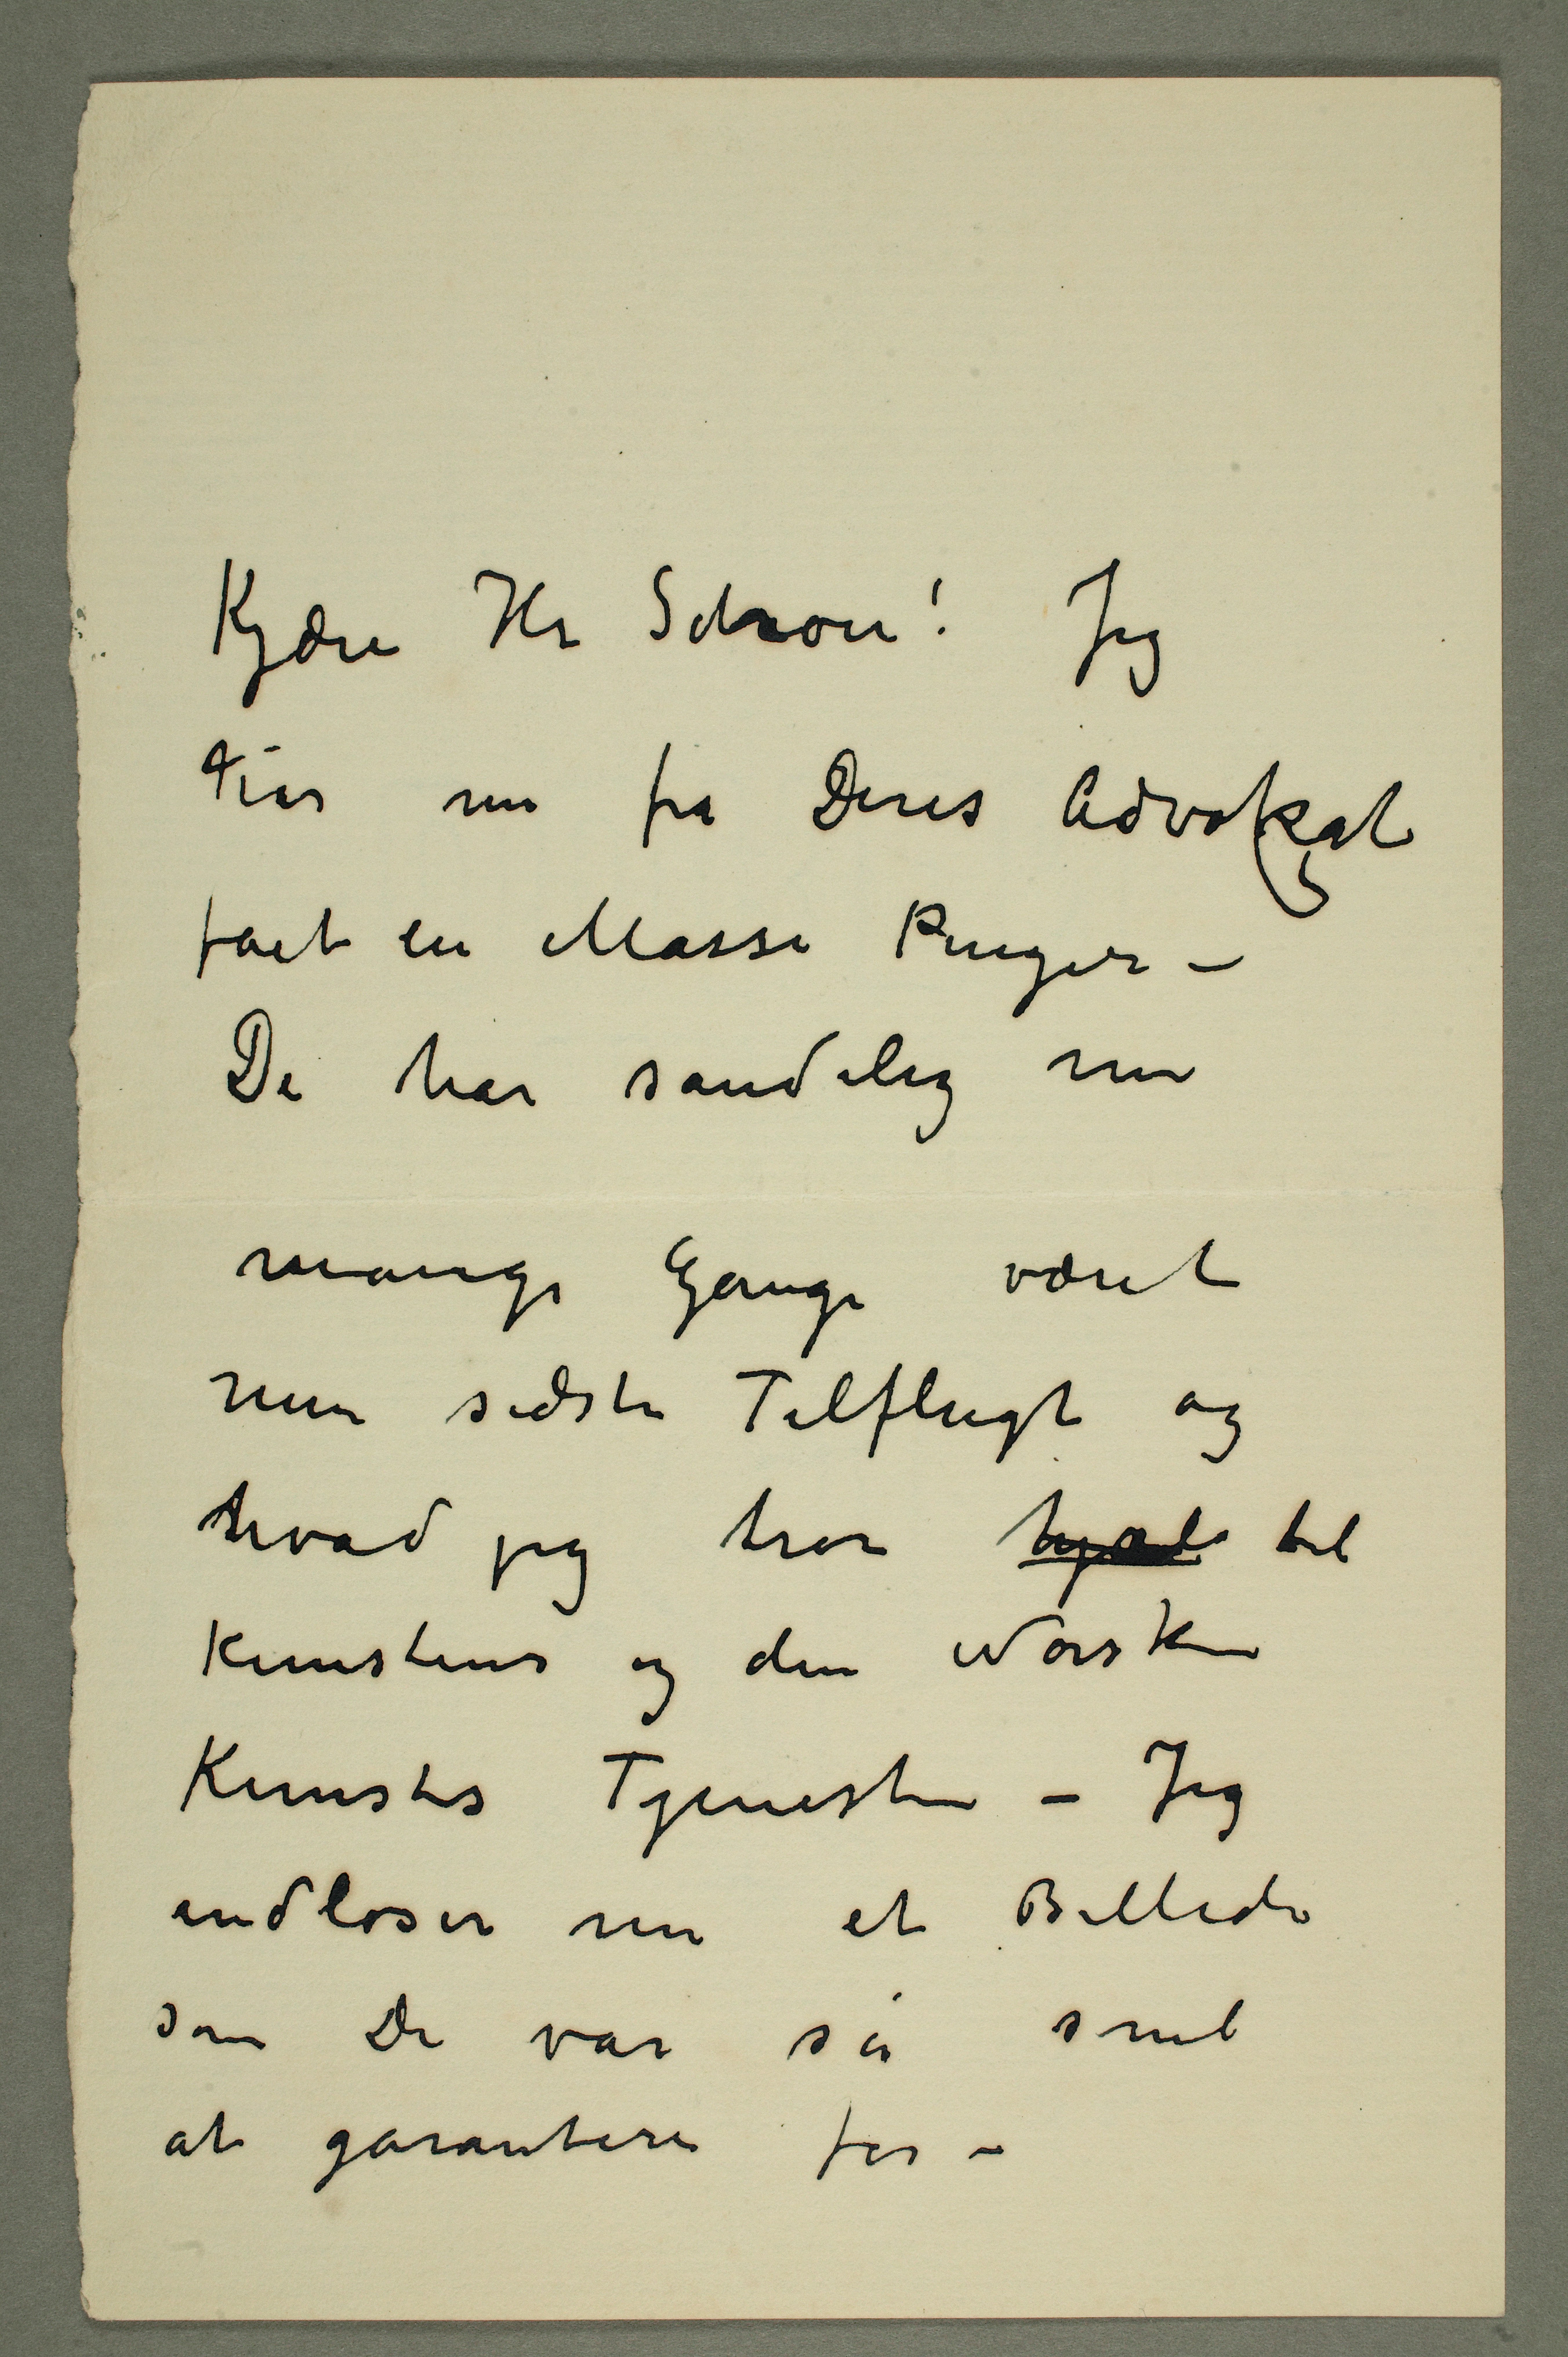 Kjære Hr Schou! Jeg
har nu fra Deres Advokat
fået en Masse Penger –
De har sandelig nu
mange Gange været
min sidste Tilflugt og
hvad jeg tror til
Kunstens og den norske
Kunsts Tjeneste – Jeg
indløser nu et Billede
som De var så snil
at garantere for –